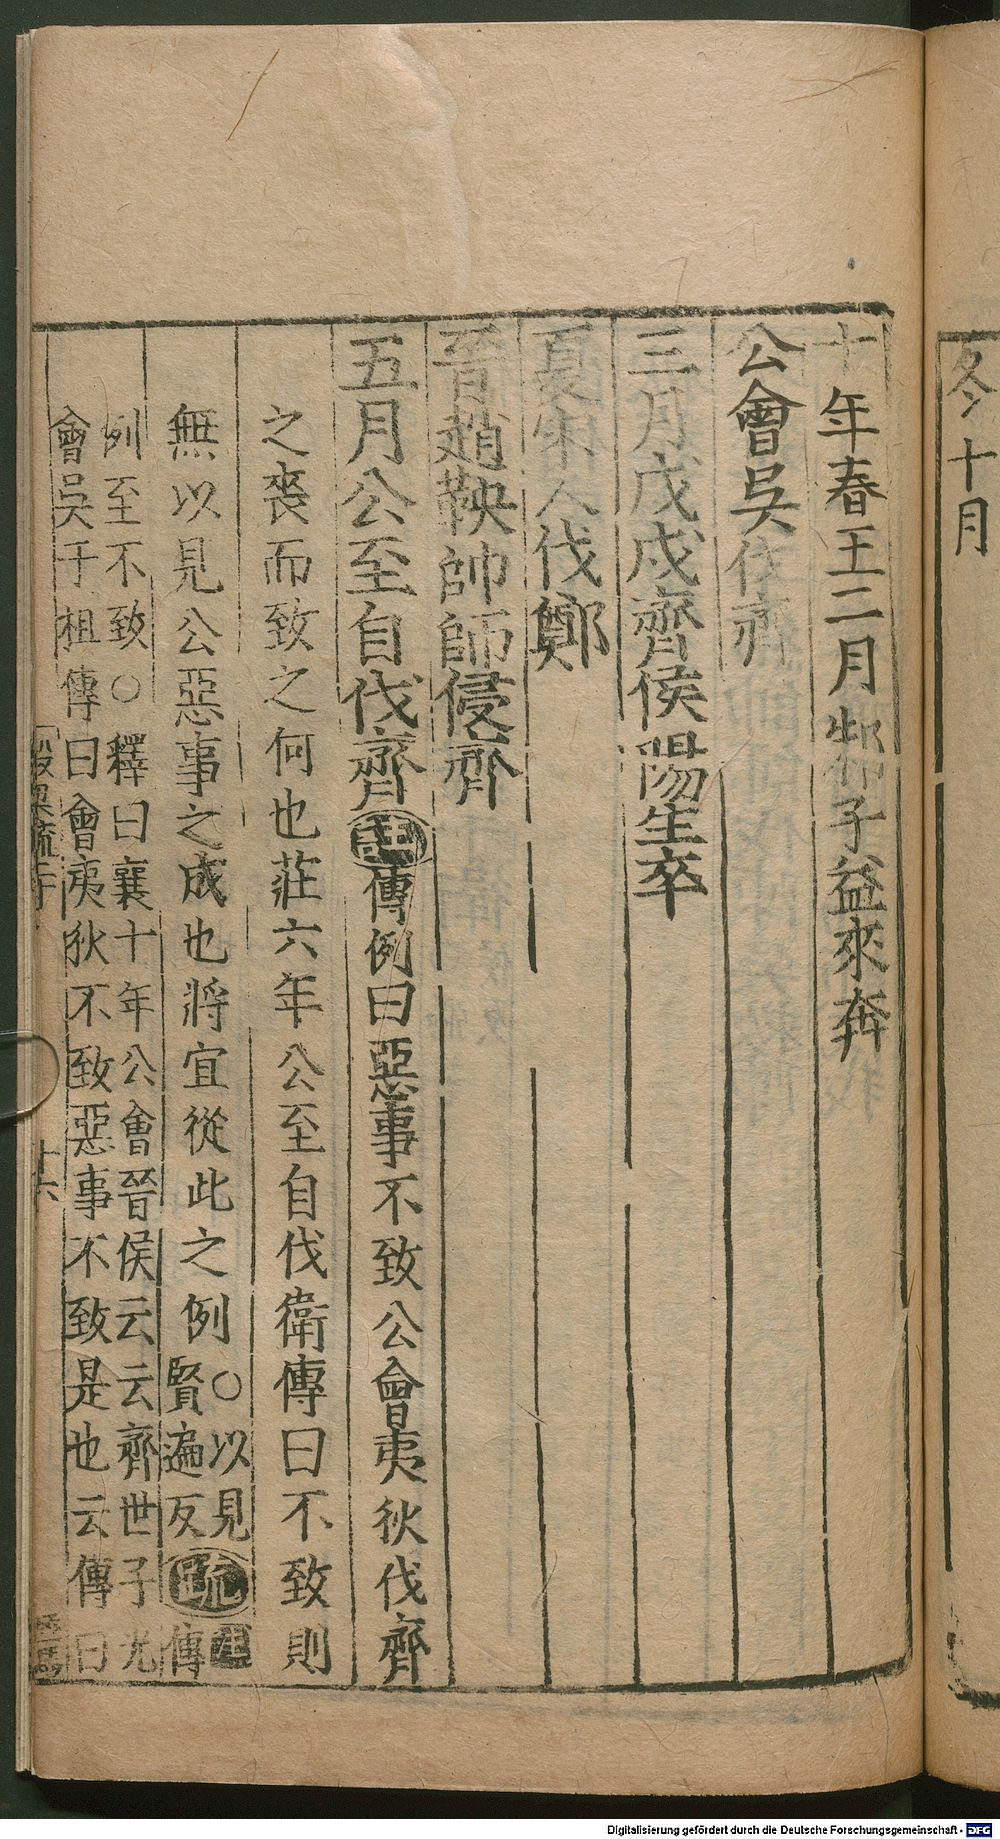 冬十月
十年春王二月邾子益來奔
公會吳伐齊
三月戊戌齊侯陽生卒
夏宋人伐鄭
晉趙鞅帥師侵齊
五月公至自伐齊註傳例曰惡事不致公會夷狄伐齊
之喪而致之何也莊六年公至自伐衛傳曰不致則
無以見公惡事之成也將宜從此之例○以見
賢遍反疏註傳
例至不致○釋曰襄十年公會晉侯云云齊世子光
會吳于柤傳曰會夷狄不致惡事不致是也云傳曰
十六
Digitalisierung gefördert durch die Deutsche Forschungsgemeinschaft - DFG